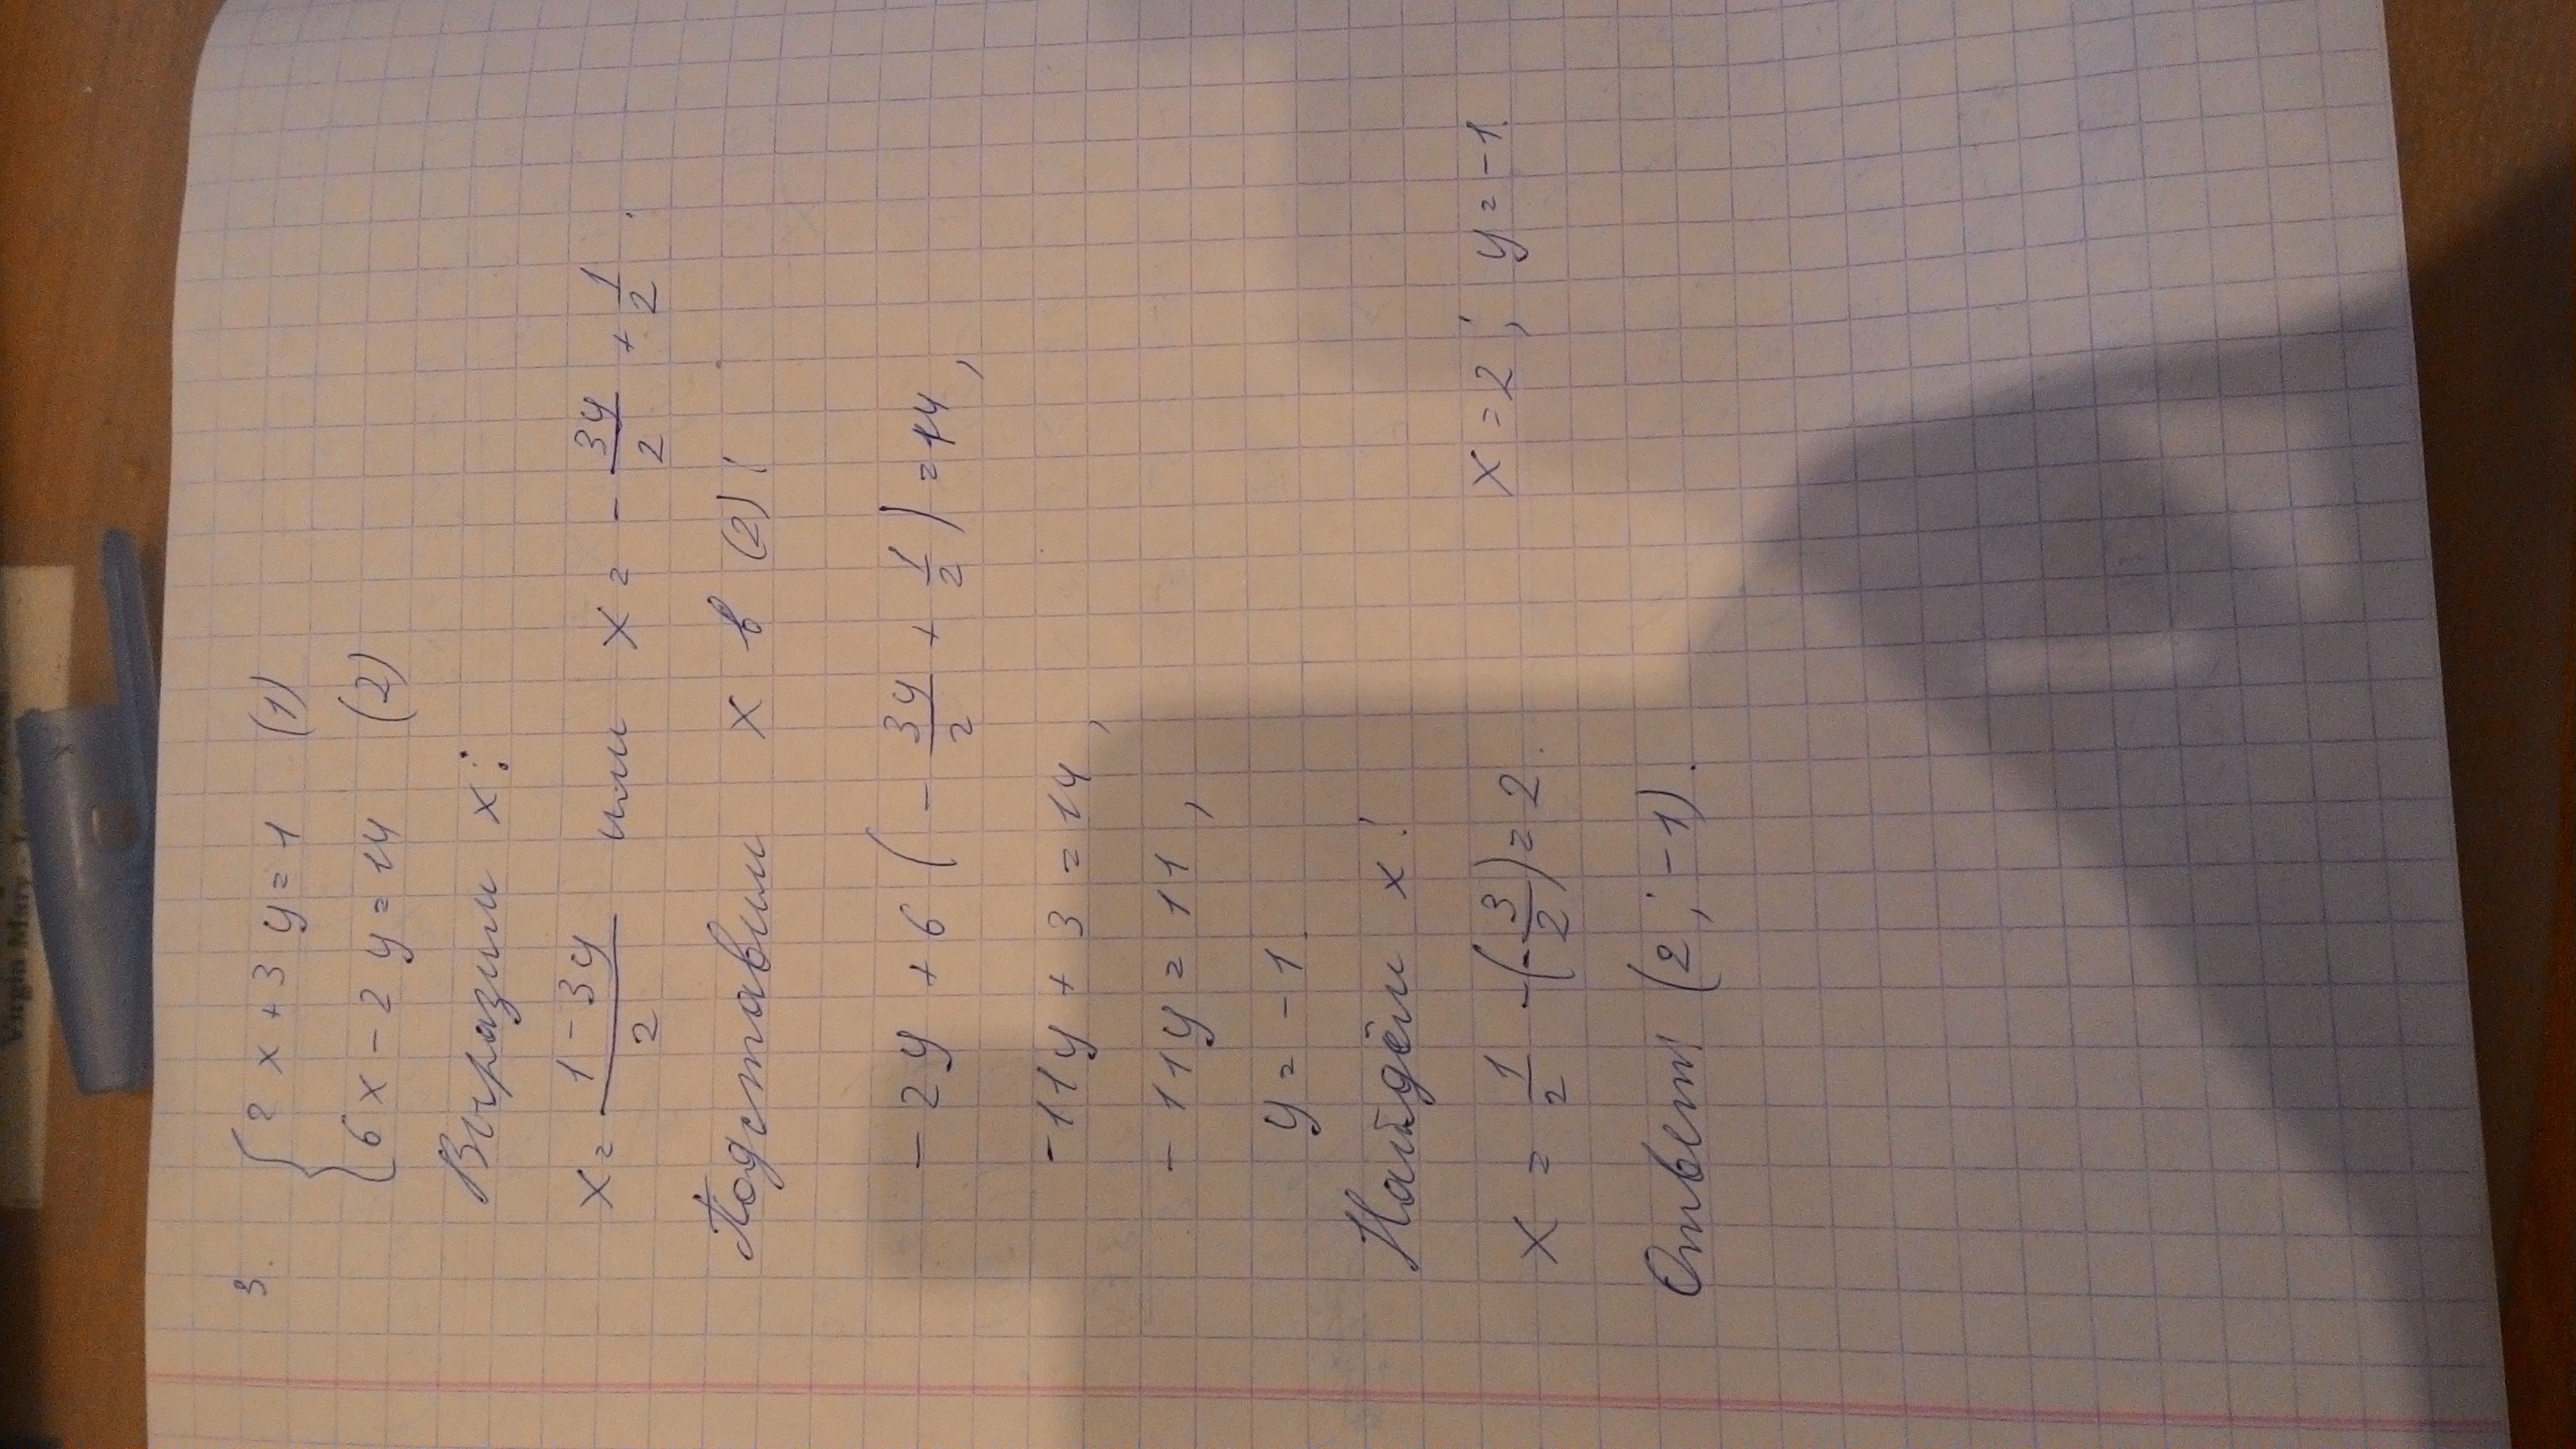 3.
{ 2x + 3y = 1 (1)
{ 6x - 2y = 14 (2)
Выразим x:
x = \frac{1 - 3y}{2} или x = - \frac{3y}{2} + \frac{1}{2}.
Подставим x в (2):
- 2y + 6 ( - \frac{3y}{2} + \frac{1}{2} ) = 14,
- 11y + 3 = 14,
- 11y = 11,
y = - 1.
Найдём x:
x = \frac{1}{2} - (- \frac{3}{2}) = 2. x = 2; y = -1.
Ответ (2; -1).